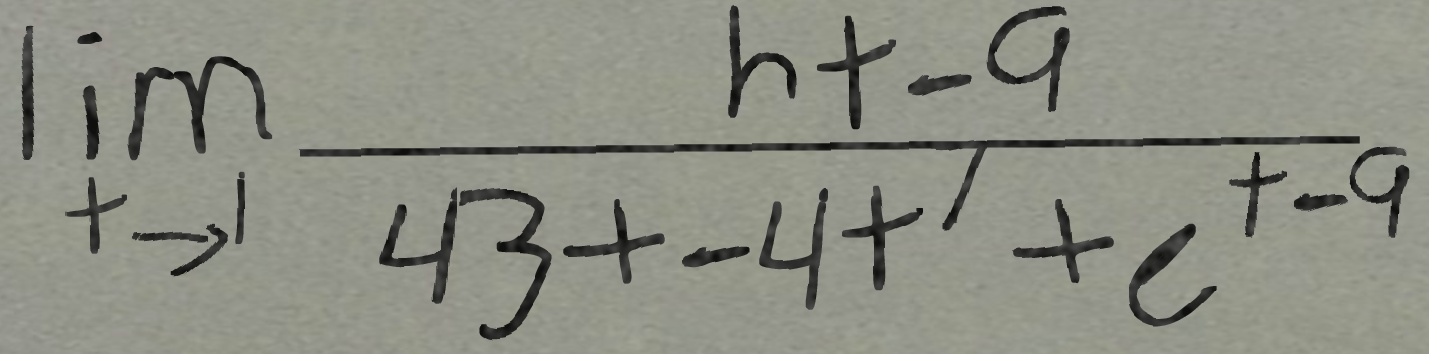 \lim_{t \to 1} \frac{ht-9}{43+-4t^{7}+e^{t-9}}